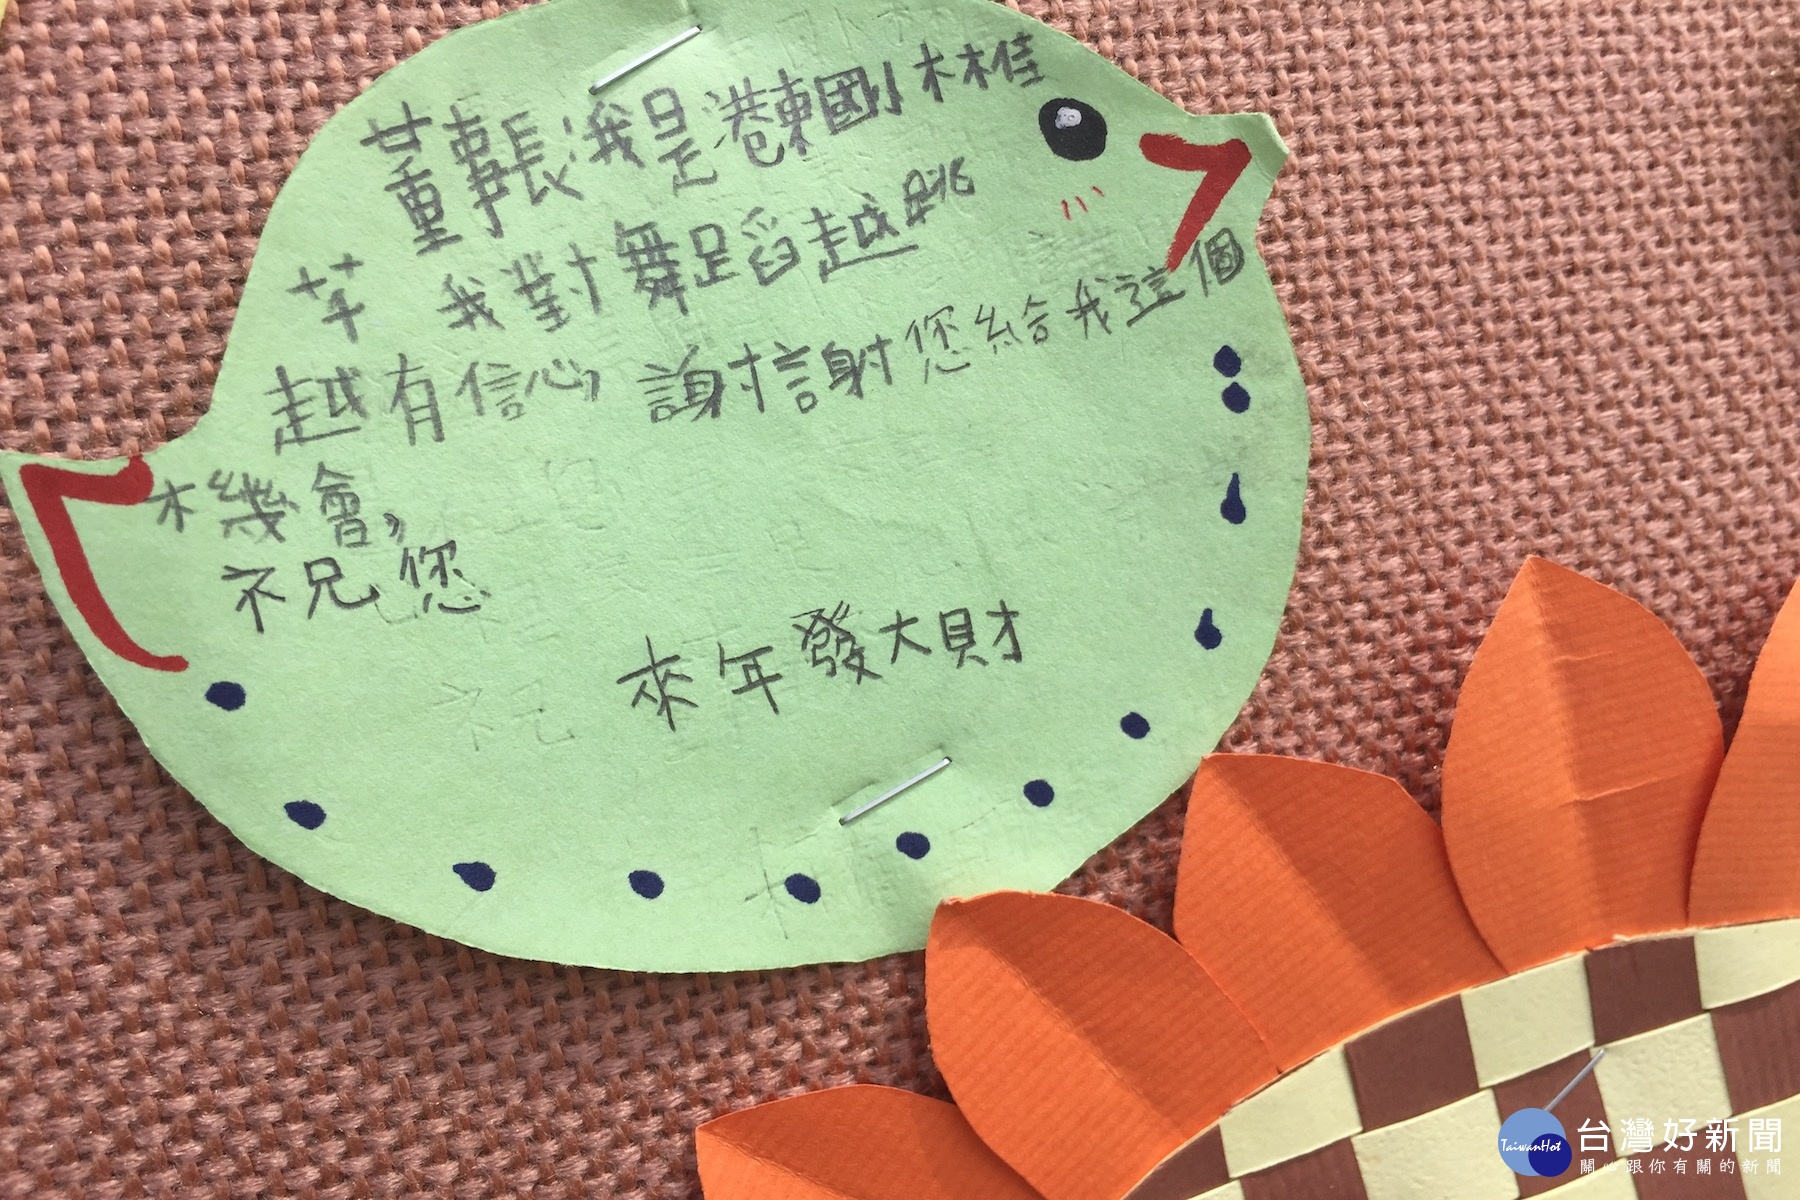 董事長:我是港東國小林桂
芊 我對舞蹈越跳
越有信心,謝謝您給我這個
機會,
祝您
來年發大財
TaiwanHot
台灣好新聞
關心跟你有關的新聞